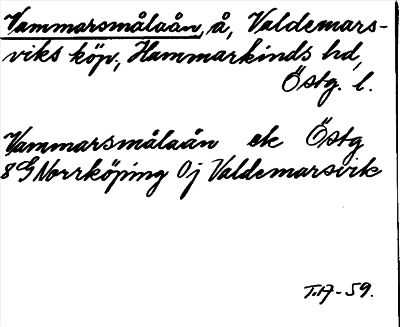 Vammarsmålaån, å, Valdemars-
viks köp., Hammarkinds hd,
Östg. l.
Vammarsmålaån ek Östg
8G Norrköping 0j Valdemarsvik
T.A-59.